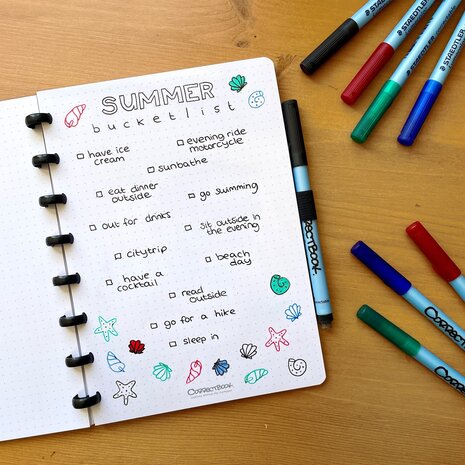 SUMMER
bucketlist
have ice
cream
evening ride
motorcycle
sunbathe
eat dinner
outside
go summing
out for drinks
sit outside in
the evening
citytrip
beach
day
have a
cocktail
read
outside
go for a hike
sleep in
CORRECTBOOK
CORRECTBOOK
STAEDTLER
STAEDTLER
STAEDTLER
STAEDTLER
CORRECTBOOK
CORRECTBOOK